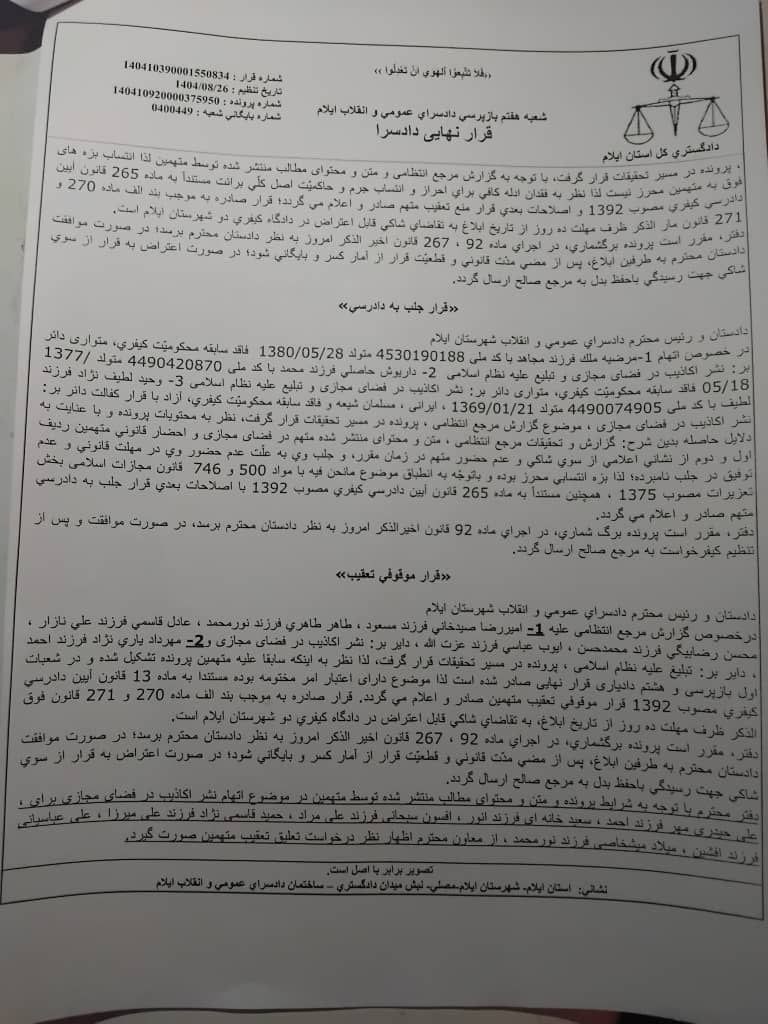 ‹‹فَلا تَتَّبِعُوا اَلْهَوي اَنْ تَعْدِلُوا ››
شماره قرار : 140410390001550834
تاریخ تنظیم : 1404/08/26
شماره پرونده : 140410920000375950
شماره بایگاني شعبه : 0400449
شعبه هفتم بازپرسي دادسراي عمومي و انقلاب ایلام
قرار نهایی دادسرا
دادگستري کل استان ایلام
، پرونده در مسیر تحقیقات قرار گرفت، با توجه به گزارش مرجع انتظامی و متن و محتوای مطالب منتشر شده توسط متهمین لذا انتساب بزه های
فوق به متهمین محرز نیست لذا نظر به فقدان ادله کافي براي احراز و انتساب جرم و حاکمیّت اصل کلّي برائت مستنداً به ماده 265 قانون آیین
دادرسي کیفري مصوب 1392 و اصلاحات بعدي قرار منع تعقیب متهم صادر و اعلام مي گردد؛ قرار صادره به موجب بند الف ماده 270 و
271 قانون مار الذکر ظرف مهلت ده روز از تاریخ ابلاغ به تقاضاي شاکي قابل اعتراض در دادگاه کیفري دو شهرستان ایلام است.
دفتر، مقرر است پرونده برگشماري، در اجراي ماده 92 ، 267 قانون اخیر الذکر امروز به نظر دادستان محترم برسد؛ در صورت موافقت
دادستان محترم به طرفین ابلاغ، پس از مضي مدّت قانوني و قطعیّت قرار از آمار کسر و بایگاني شود؛ در صورت اعتراض به قرار از سوي
شاکي جهت رسیدگي باحفظ بدل به مرجع صالح ارسال گردد.
«قرار جلب به دادرسي»
دادستان و رئیس محترم دادسراي عمومي و انقلاب شهرستان ایلام
در خصوص اتهام 1-مرضیه ملك فرزند مجاهد با کد ملی 4530190188 متولد 1380/05/28 فاقد سابقه محکومیّت کیفري، متواری دائر
بر: نشر اکاذیب در فضای مجازی و تبلیغ علیه نظام اسلامی 2- داریوش حاصلي فرزند محمد با کد ملی 4490420870 متولد 1377/
05/18 فاقد سابقه محکومیّت کیفري، متواری دائر بر: نشر اکاذیب در فضای مجازی و تبلیغ علیه نظام اسلامی 3- وحید لطیف نژاد فرزند
لطیف با کد ملی 4490074905 متولد 1369/01/21 ، ایرانی ، مسلمان شیعه و فاقد سابقه محکومیّت کیفري، آزاد با قرار کفالت دائر بر:
نشر اکاذیب در فضای مجازی ، موضوع گزارش مرجع انتظامی ، پرونده در مسیر تحقیقات قرار گرفت، نظر به محتویات پرونده و با عنایت به
دلایل حاصله بدین شرح: گزارش و تحقیقات مرجع انتظامی ، متن و محتوای منتشر شده متهم در فضای مجازی و احضار قانوني متهمین ردیف
اول و دوم از نشاني اعلامي از سوي شاکي و عدم حضور متهم در زمان مقرر، و جلب وي به علّت عدم حضور وي در مهلت قانوني و عدم
توفیق در جلب نامبرده؛ لذا بزه انتسابي محرز بوده و باتوجّه به انطباق موضوع مانحن فیه با مواد 500 و 746 قانون مجازات اسلامی بخش
تعزیرات مصوب 1375 ، همچنین مستنداً به ماده 265 قانون آیین دادرسي کیفري مصوب 1392 با اصلاحات بعدي قرار جلب به دادرسي
متهم صادر و اعلام مي گردد.
دفتر، مقرر است پرونده برگ شماري، در اجراي ماده 92 قانون اخیرالذکر امروز به نظر دادستان محترم برسد، در صورت موافقت و پس از
تنظیم کیفرخواست به مرجع صالح ارسال گردد.
«قرار موقوفي تعقیب»
دادستان و رئیس محترم دادسراي عمومي و انقلاب شهرستان ایلام
درخصوص گزارش مرجع انتظامی علیه 1- امیررضا صیدخاني فرزند مسعود ، طاهر طاهري فرزند نورمحمد ، عادل قاسمي فرزند علي نازار ،
محسن رضابیگي فرزند محمدحسن ، ایوب عباسي فرزند عزت الله ، دایر بر: نشر اکاذیب در فضای مجازی و2- مهرداد یاري نژاد فرزند احمد
، دایر بر: تبلیغ علیه نظام اسلامی ، پرونده در مسیر تحقیقات قرار گرفت، لذا نظر به اینکه سابقا علیه متهمین پرونده تشکیل شده و در شعبات
اول بازپرسی و هشتم دادیاری قرار نهایی صادر شده است لذا موضوع دارای اعتبار امر مختومه بوده مستندا به ماده 13 قانون آیین دادرسي
کیفري مصوب 1392 قرار موقوفي تعقیب متهمین صادر و اعلام مي گردد. قرار صادره به موجب بند الف ماده 270 و 271 قانون فوق
الذکر ظرف مهلت ده روز از تاریخ ابلاغ، به تقاضاي شاکي قابل اعتراض در دادگاه کیفري دو شهرستان ایلام است.
دفتر، مقرر است پرونده برگشماري، در اجراي ماده 92 ، 267 قانون اخیر الذکر امروز به نظر دادستان محترم برسد؛ در صورت موافقت
دادستان محترم به طرفین ابلاغ، پس از مضي مدّت قانوني و قطعیّت قرار از آمار کسر و بایگاني شود؛ در صورت اعتراض به قرار از سوي
شاکي جهت رسیدگي باحفظ بدل به مرجع صالح ارسال گردد.
دفتر محترم با توجه به شرایط پرونده و متن و محتوای مطالب منتشر شده توسط متهمین در موضوع اتهام نشر اکاذیب در فضای مجازی براي ،
علی حیدري مهر فرزند احمد ، سعید خانه اي فرزند انور ، افسون سبحاني فرزند علي مراد ، حمید قاسمي نژاد فرزند علي میرزا ، علي عباسیاني
فرزند افشین ، میلاد میشخاصی فرزند نورمحمد ، از معاون محترم اظهار نظر درخواست تعلیق تعقیب متهمین صورت گیرد.
تصویر برابر با اصل است.
نشاني: استان ایلام- شهرستان ایلام-مصلي- نبش میدان دادگستري – ساختمان دادسراي عمومي و انقلاب ایلام